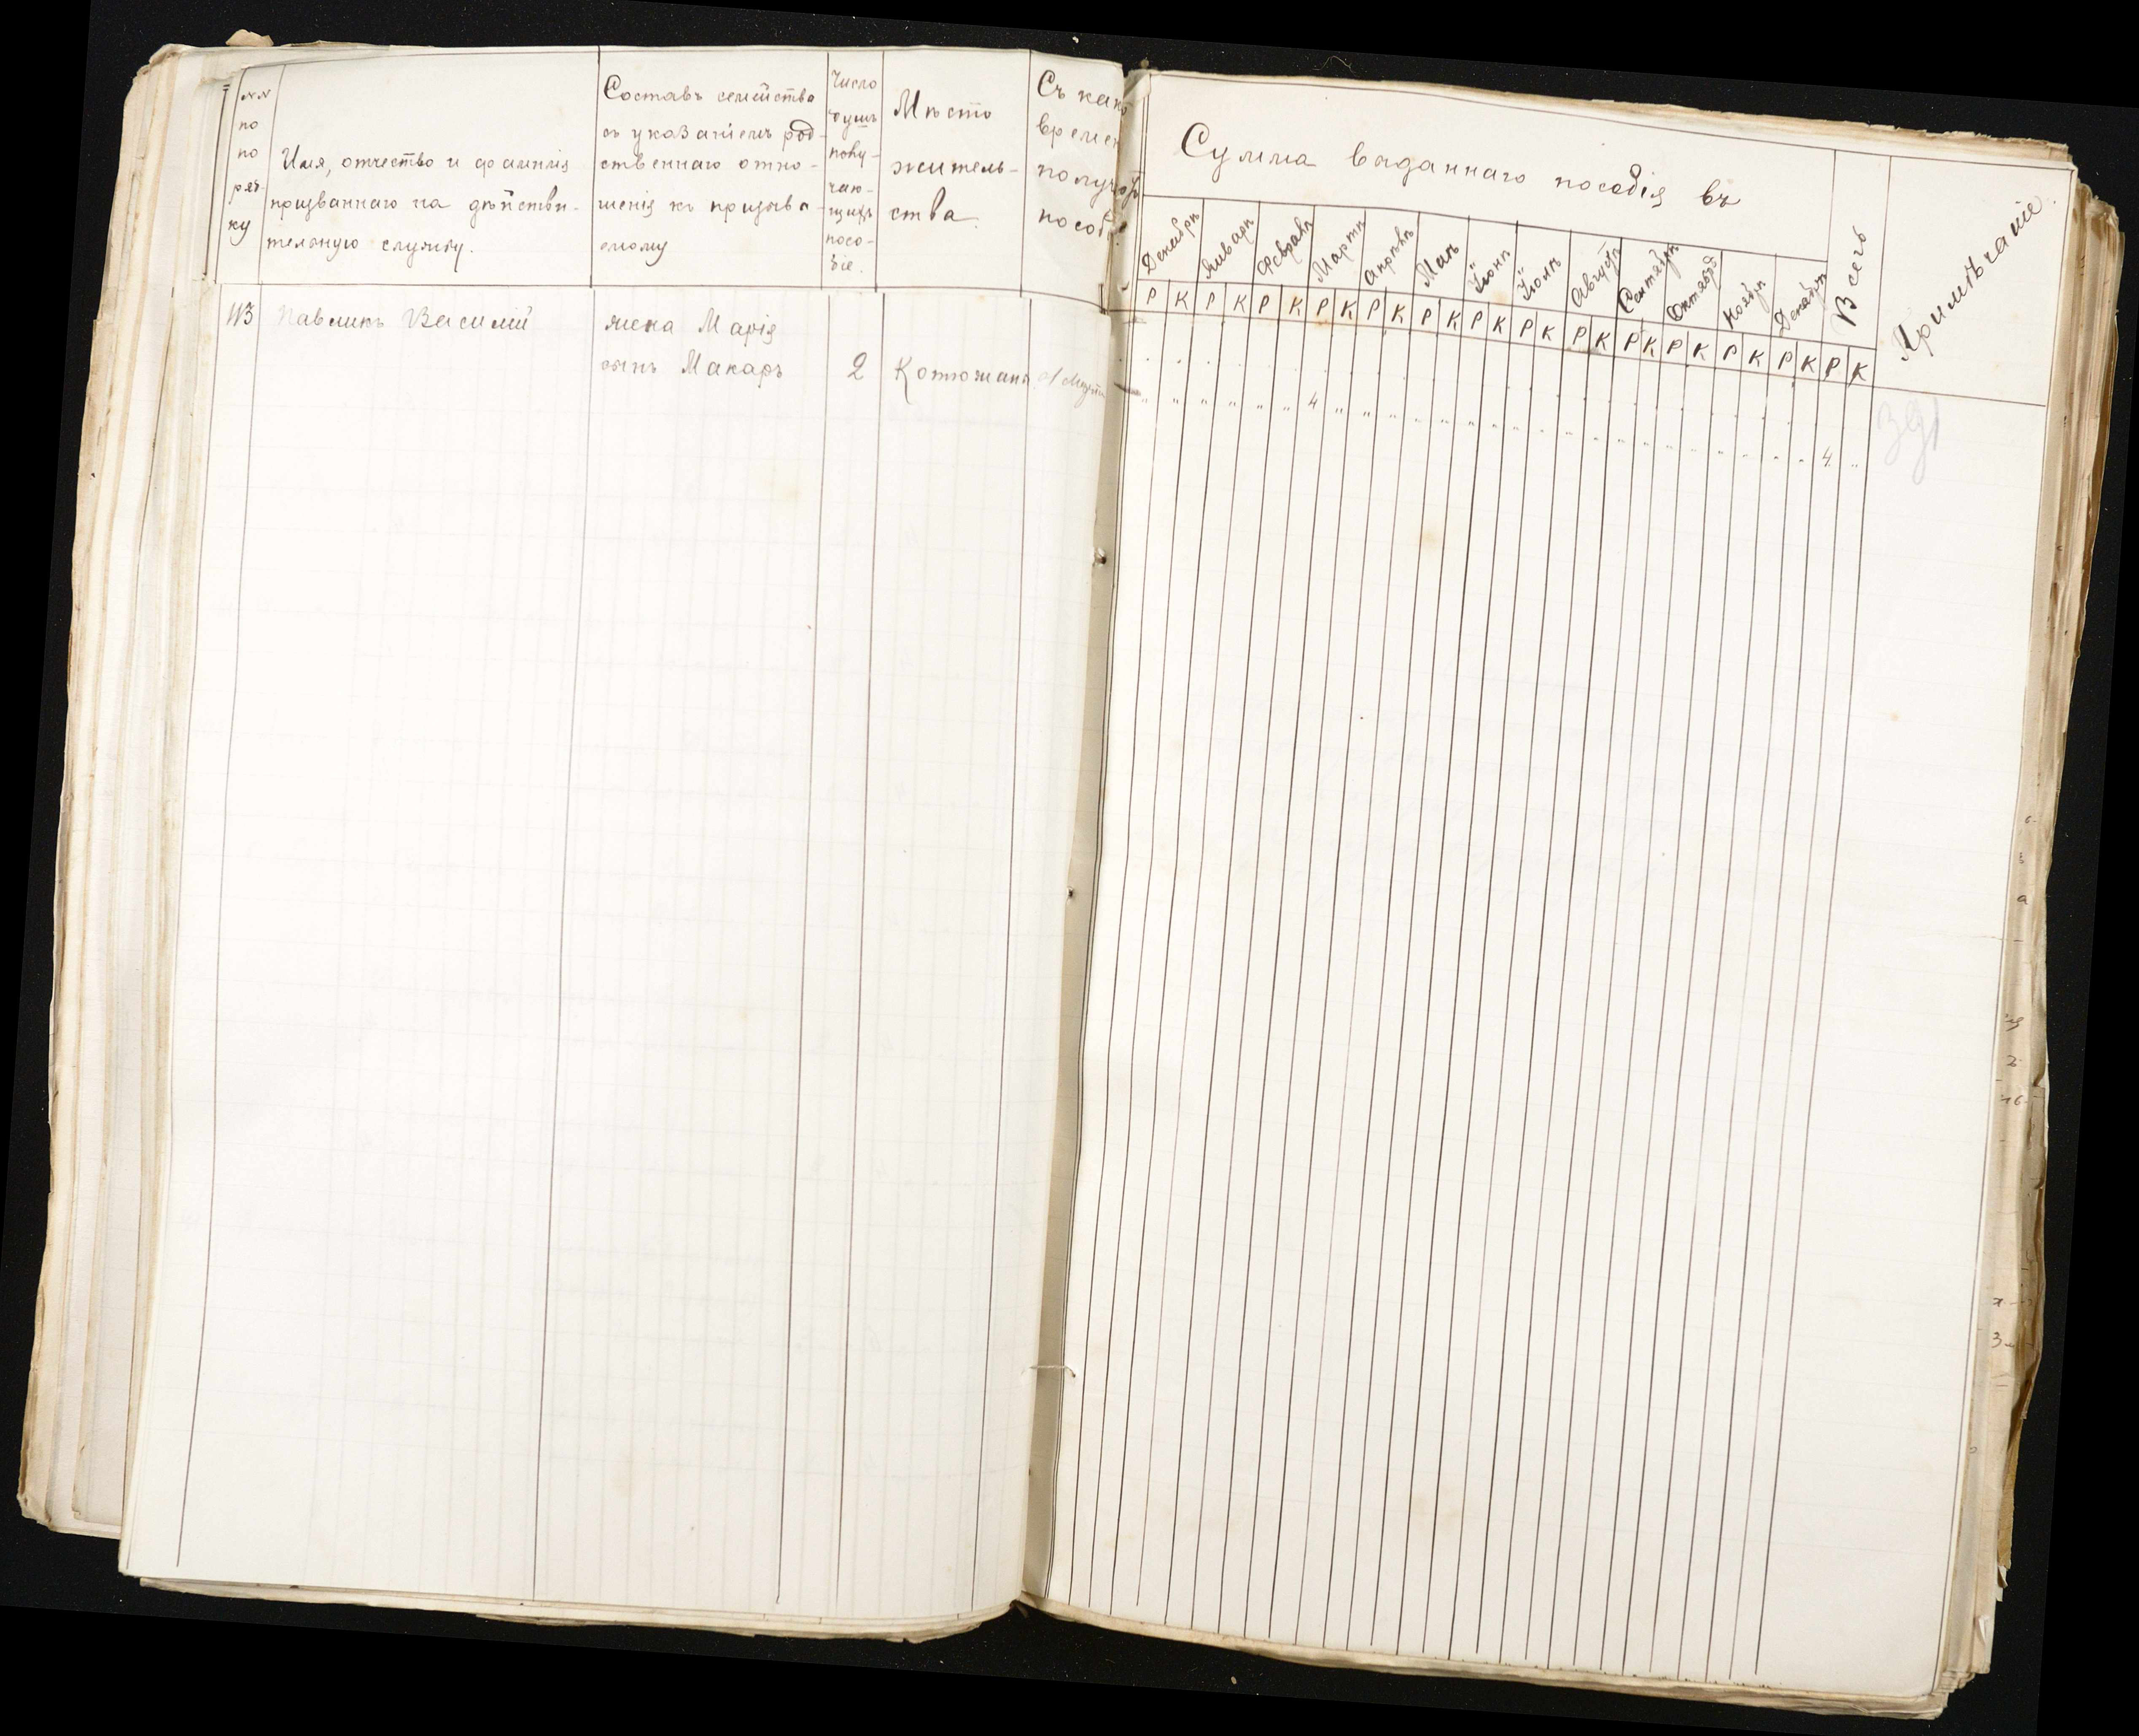 №№
по
по
ряд-
ку
Имя, отчество и фамилія
призваннаго на дѣйстви-
тельную службу.
Составъ семейства
съ указаніемъ род-
ственнаго отно-
шенія къ призыва-
емому
Число
душъ
полу-
чаю-
щихъ
посо-
біе.
Мѣсто
житель-
ства.
Съ како
времен
получа
пособ
Сумма выданнаго пособія въ
Декабрѣ
Январѣ
Февралѣ
Мартѣ
Апрѣлѣ
Маѣ
Іюнѣ
Іюлѣ
Августѣ
Сентябрѣ
Октябрѣ
Ноябрѣ
Декабрѣ
Всего
Примѣчаніе.
Р К Р К Р К Р К Р К Р К Р К Р К Р К Р К Р К Р К Р К Р К
113 Павликъ Василій жена Марія
сынъ Макаръ 2 Котюжаны
" " " " " " 4 " " " " " " " " " " " " " " " " " " " 4 "